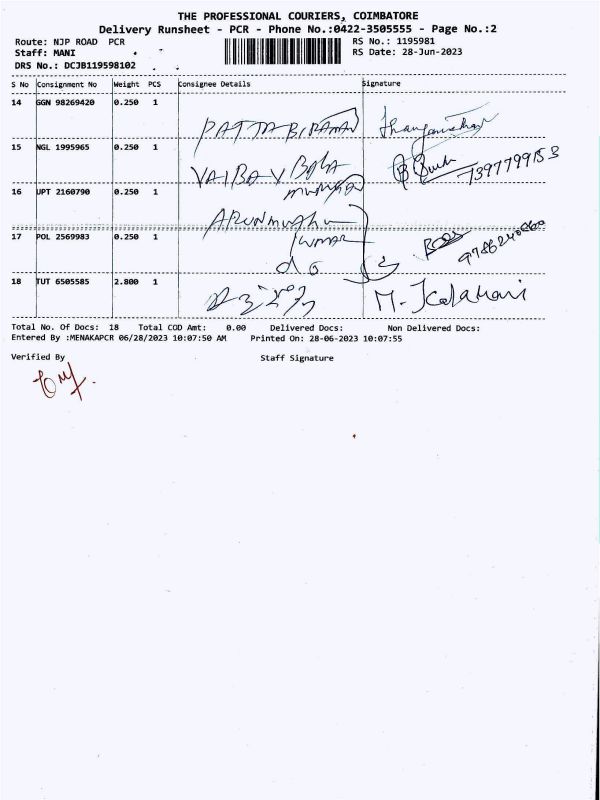 THE PROFESSIONAL COURIERS, COIMBATORE
Delivery Runsheet - PCR - Phone No.:0422-3505555 - Page No.:2
Route: NJP ROAD PCR
RS No.: 1195981
Staff: MANI
RS Date: 28-Jun-2023
DRS No.: DCJB119598102
S No Consignment No Weight PCS Consignee Details Signature
14 GGN 98269420 0.250 1
PATTABIRAMAN
15 NGL 1995965 0.250 1
VAIBAV Bala
murugan 7397799153
16 UPT 2160790 0.250 1
ARUNmughu
17 POL 2569983 0.250 1
kumar 9786240860
do
18 TUT 6505585 2.800 1
M. Kalamani
Total No. Of Docs: 18 Total COD Amt: 0.00 Delivered Docs: Non Delivered Docs:
Entered By :MENAKAPCR 06/28/2023 10:07:50 AM Printed On: 28-06-2023 10:07:55
Verified By Staff Signature